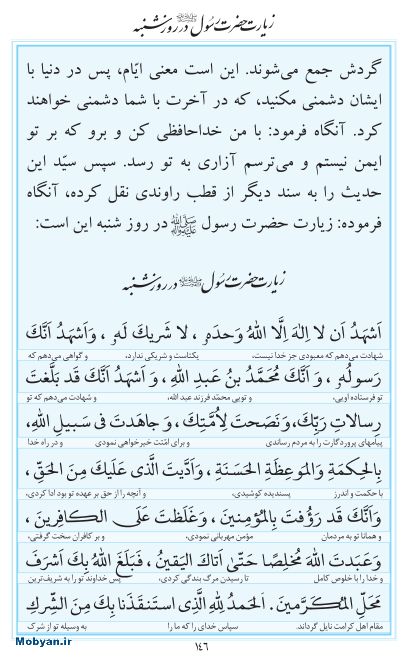 زیارت حضرت رسول ﷺ در روز شنبه
گردش جمع می‌شوند. این است معنی ایّام، پس در دنیا با
ایشان دشمنی مکنید، که در آخرت با شما دشمنی خواهند
کرد. آنگاه فرمود: با من خداحافظی کن و برو که بر تو
ایمن نیستم و می‌ترسم آزاری به تو رسد. سپس سیّد این
حدیث را به سند دیگر از قطب راوندی نقل کرده، آنگاه
فرموده: زیارت حضرت رسول ﷺ در روز شنبه این است:
زیارت حضرت رسول ﷺ در روز شنبه
اَشهَدُ اَن لا اِلٰهَ اِلَّا اللهُ وَحدَهُ، لا شَریكَ لَهُ، وَاَشهَدُ اَنَّكَ
شهادت می‌دهم که معبودی جز خدا نیست، یکتاست و شریکی ندارد، و گواهی می‌دهم که
رَسولُهُ، وَ اَنَّكَ مُحَمَّدُ بنُ عَبدِ اللهِ، وَ اَشهَدُ اَنَّكَ قَد بَلَّغتَ
تو فرستاده اویی، و تویی محمّد فرزند عبد الله، و شهادت می‌دهم که تو
رِسالاتِ رَبِّكَ، وَنَصَحتَ لِاُمَّتِكَ، وَ جاهَدتَ فی سَبیلِ اللهِ،
پیامهای پروردگارت را به مردم رساندی و برای امّتت خیرخواهی نمودی و در راه خدا
بِالحِكمَةِ وَالمَوعِظَةِ الحَسَنَةِ، وَاَدَّیتَ الَّذی عَلَیكَ مِنَ الحَقِّ،
با حکمت و اندرز پسندیده کوشیدی، و آنچه را از حق بر عهده تو بود ادا کردی،
وَاَنَّكَ قَد رَؤُفتَ بِالمُؤمِنینَ، وَغَلَظتَ عَلَی الكافِرینَ،
و همانا تو به مردمان مؤمن مهربانی نمودی، و بر کافران سخت گرفتی،
وَعَبَدتَ اللهَ مُخلِصًا حَتّیٰ اَتاكَ الیَقینُ، فَبَلَغَ اللهُ بِكَ اَشرَفَ
و خدا را با خلوص کامل تا رسیدن مرگ بندگی کردی، پس خداوند تو را به شریف‌ترین
مَحَلِّ المُكَرَّمینَ. اَلحَمدُ لِلّٰهِ الَّذِی استَنقَذَنا بِكَ مِنَ الشِّركِ
مقام اهل کرامت نایل گرداند. سپاس خدای را که ما را به وسیله تو از شرک
۱۴۶
Mobyan.ir